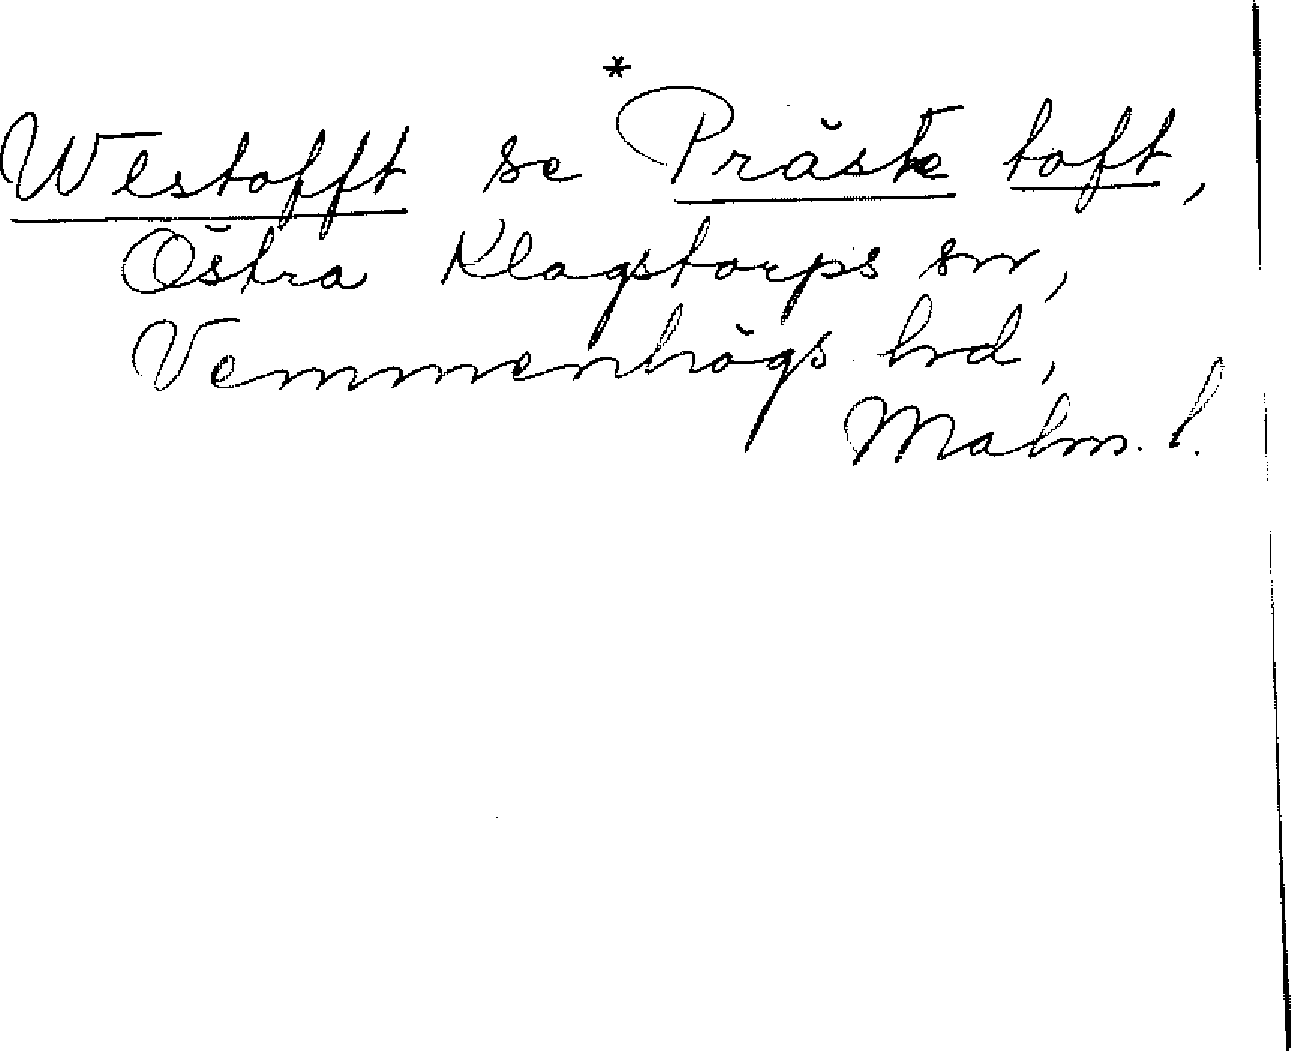 Wlstofft se *Präste toft,
Östra Klagstorps sn,
Vemmenhögs hd,
Malm. l.